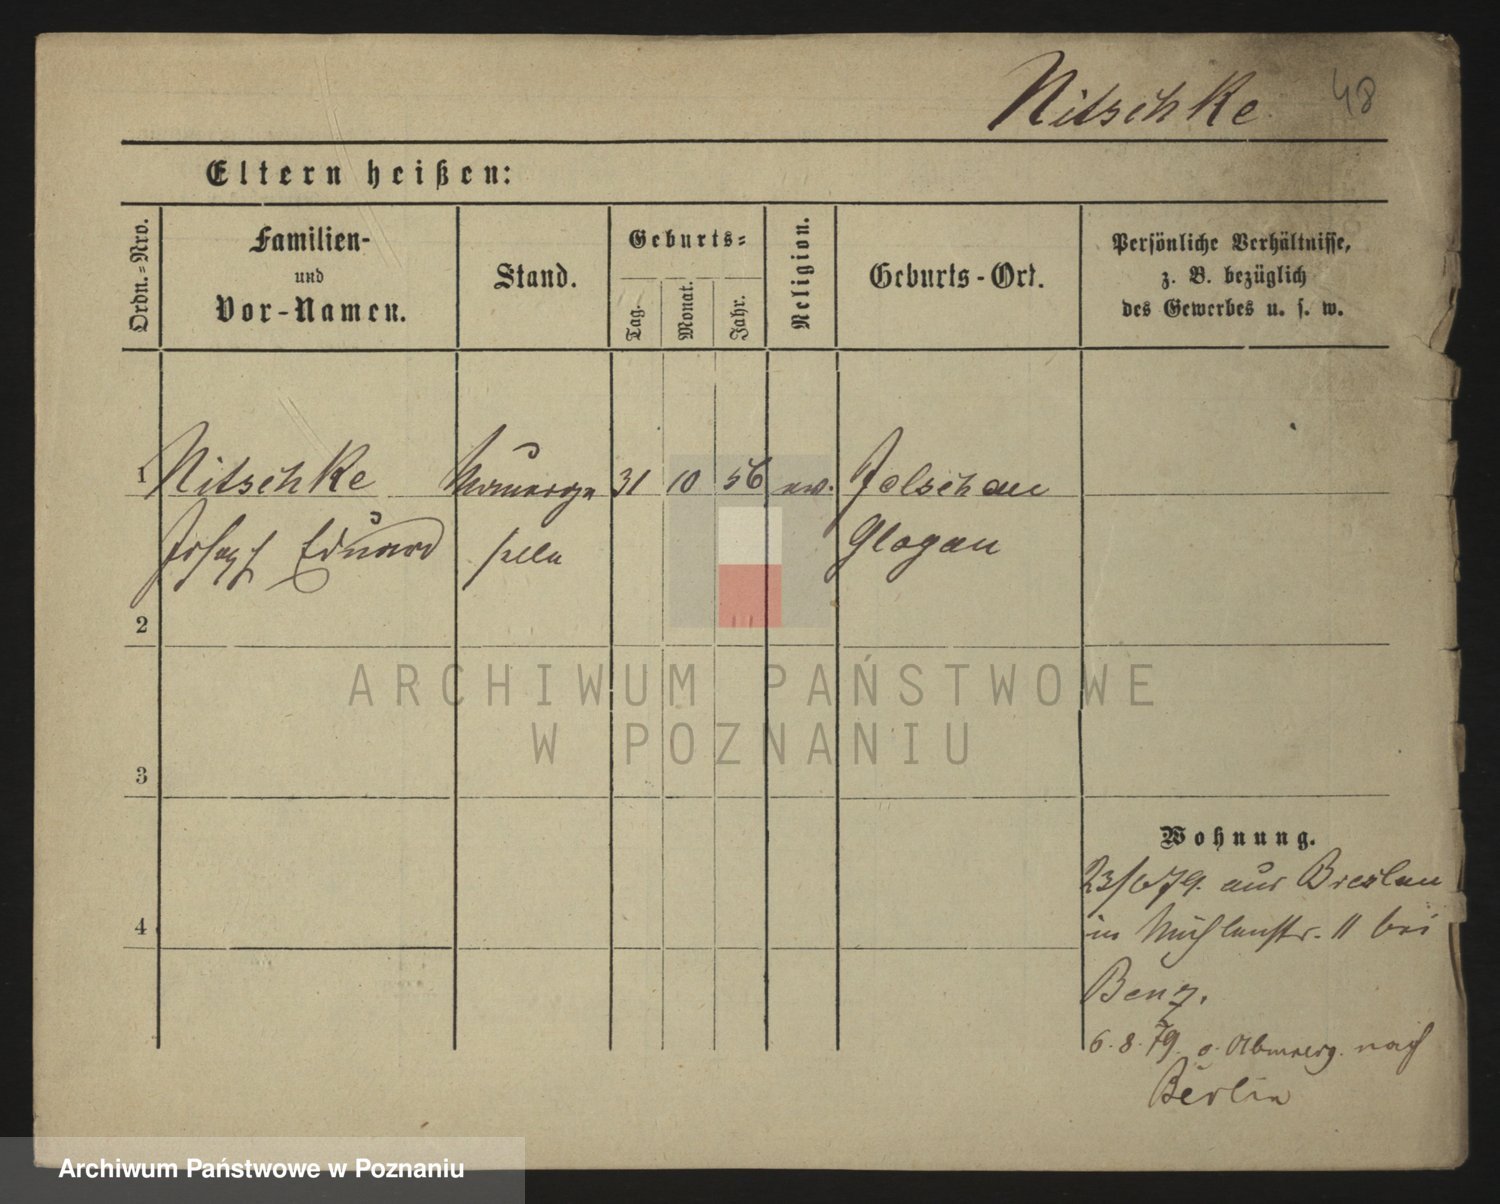 Nitschke 48
Eltern heißen:
Ordn.=Nro.
Familien-
und
Vor-Namen.
Stand.
Geburts=
Tag.
Monat.
Jahr.
Religion.
Geburts-Ort.
Persönliche Verhältnisse,
z. B. bezüglich
des Gewerbes u. s. w.
1 Nitschke Maurerge 31 10 56 ev. Jalschau
Joseph Eduard selle Glogau
2
ARCHIWUM PAŃSTWOWE
W POZNANIU
3
Wohnung.
23/6 79. aus Breslau
in Mühlenstr. 11 bei
4
Benz.
6. 8. 79. o. Abmeldg. nach
Berlin
Archiwum Państwowe w Poznaniu